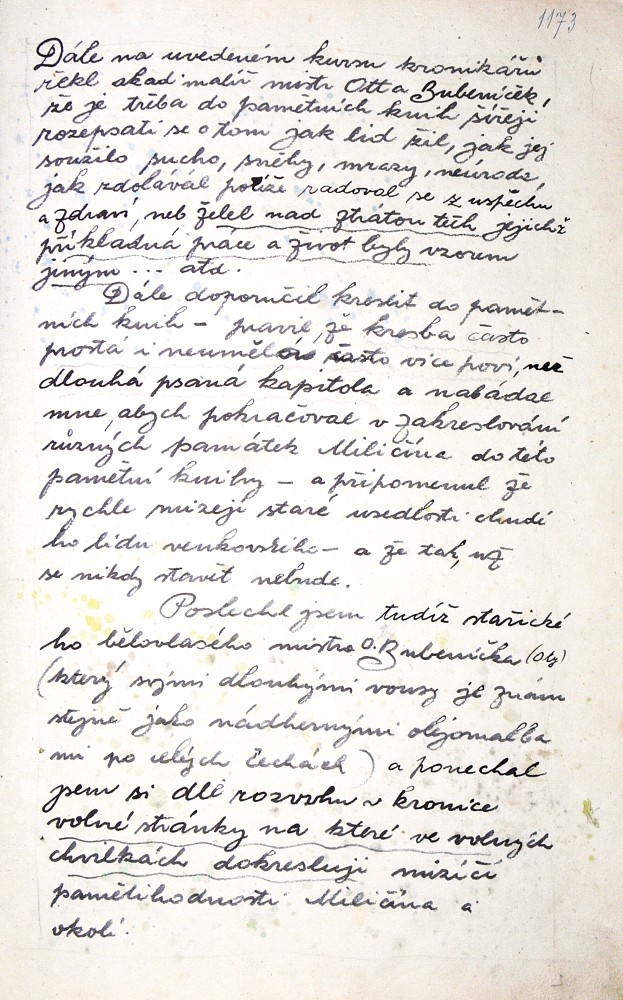 1173
Dále na uvedeném kursu kronikářů
řekl akad malíř mistr Otta Bubeníček,
že je třeba do pamětních knih šířeji
rozepsati se o tom jak lid žil, jak jej
soužilo sucho, sněhy, mrazy, neúroda,
jak zdolával potíže radoval se z uspěchu
a zdraví, neb želel nad ztrátou těch jejichž
příkladná práce a život byly vzorem
jiným ... atd.
Dále doporučil kreslit do pamět-
ních knih – pravil, že kresba často
prostá i neumělá více poví, než
dlouhá psaná kapitola a nabádal
mne, abych pokračoval v zakreslování
různých památek Miličína do této
pamětní knihy – a připomenul že
rychle mizejí staré usedlosti chudé
ho lidu venkovského – a že tak, už
se nikdy stavět nebude.
Poslechl jsem tudíž stařické
ho bělovlasého mistra O. Bubeníčka
(který svými dlouhými vousy je znám
stejně jako nádhernými olejomalba
mi po celých Čechách) a ponechal
jsem si dle rozvrhu v kronice
volné stránky na které ve volných
chvilkách dokresluji mizící
pamětihodnosti Miličína a
okolí.